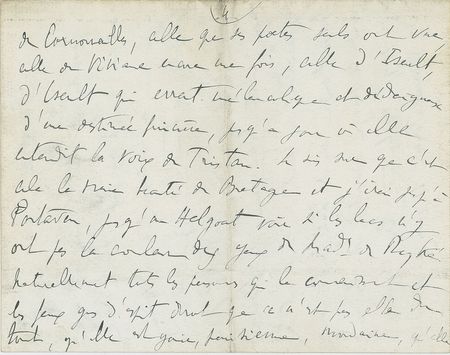 4
de Cornouailles, celle que ses poètes seuls ont vue,
celle de Viviane encore une fois, celle d'Iseult,
d'Iseult qui errait mélancolique et dédaigneuse
d'une destinée première, jusqu'au jour où elle
entendit la voix de Tristan. Je sais que c'est
cela la vraie beauté de Bretagne et j'irai jusqu'à
jusqu'au Helgoat voir si les lacs n'y
ont pas la couleur des yeux de Made de
naturellement tous les personnes qui la connaissent et
les faux gens d'esprit diront que ce n'est pas elle du
tout, qu'elle est gaie, parisienne, mondaine, qu'elle